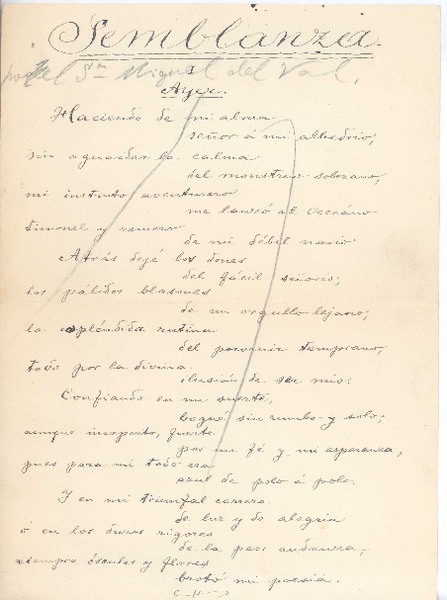 Semblanza.
por el Sr. Miguel del Val.
Ayer.
Haciendo de mi alma
señor á mi albedrio,
sin aguardar la calma
del monstruo soberano,
mi instinto aventurero
me lanzó al Occeáno
timonel y remero
de mi débil navio
Atrás dejé los dones
del fácil señorio;
los pálidos blasones
de un orgullo lejano;
la espléndida rutina
del porvenir temprano,
todo por la divina
ilusión de ser mio.
Confiando en mi suerte,
bogué sin rumbo y solo;
aunque inexperto, fuerte
por mi fé y mi esperanza,
pues para mi todo era
azul de polo á polo.
Y en mi triunfal carrera
de luz y de alegria
ó en los duros rigores
de la peor andanza,
siempre ósculos y flores
brotó mi poesia.